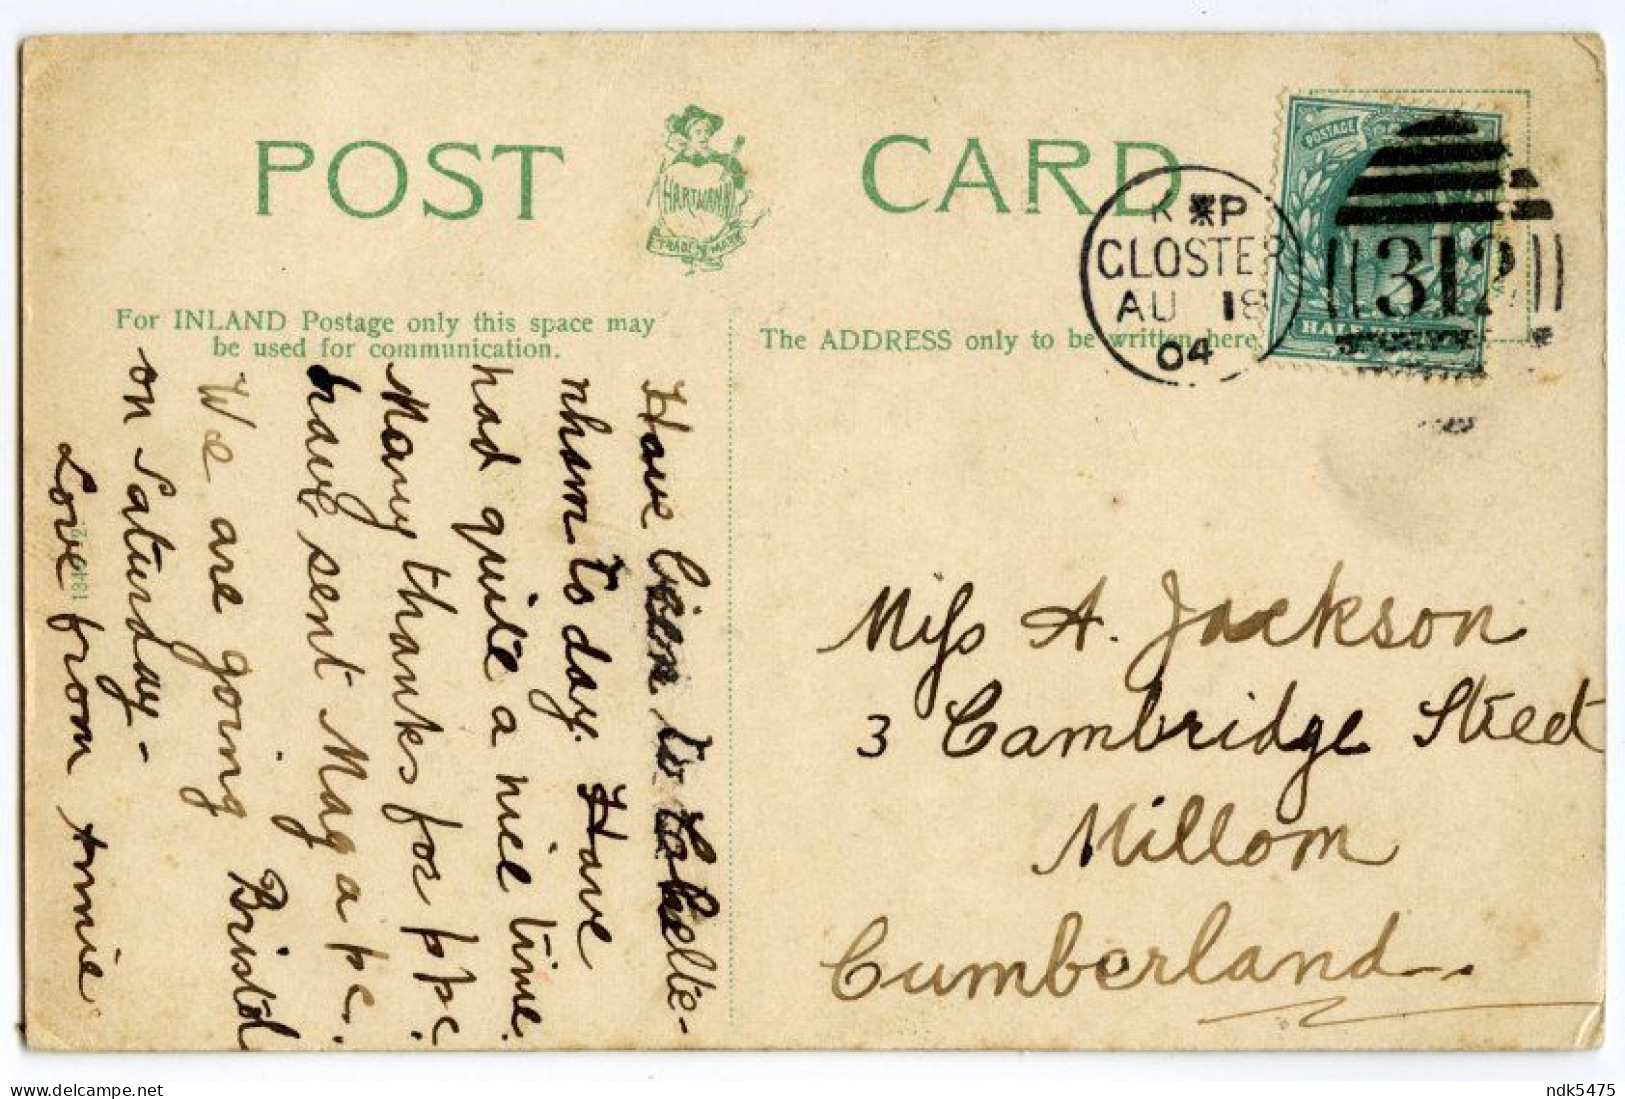 POST CARD
HARTMANN
TRADE MARK
For INLAND Postage only this space may
be used for communication.
The ADDRESS only to be written here.
POSTAGE
HALF
K P
GLOSTER
AU 18
04
312
Have been to
nham to day. Have
had quite a nice time.
Many thanks for ppc.
have sent Mag a pc.
We are going Bristol
on Saturday -
Love from Annie
Miss A. Jackson
3 Cambridge Street
Millom
Cumberland.
ndk5475